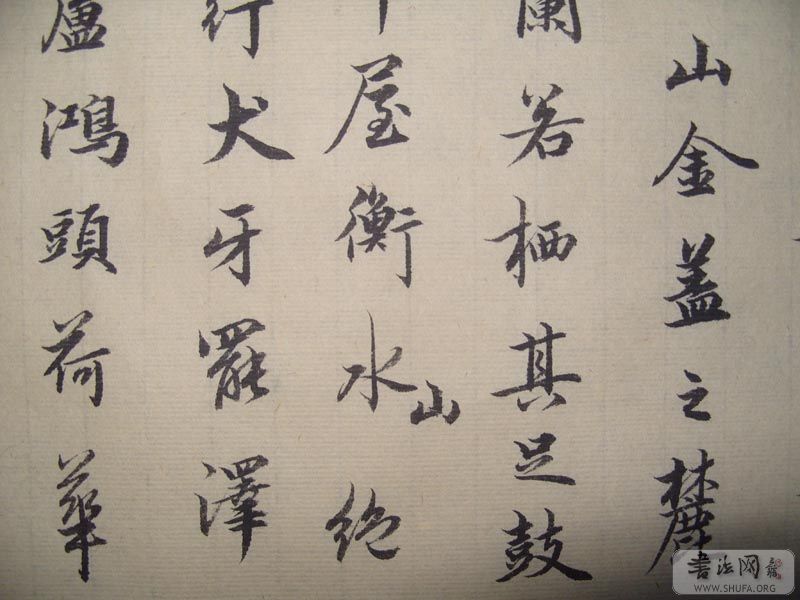 山金盖之麓
蘭若栖其足鼓
屋衡水山絶
行犬牙罷澤
盧鴻頭荷華
书法网
WWW.SHUFA.ORG